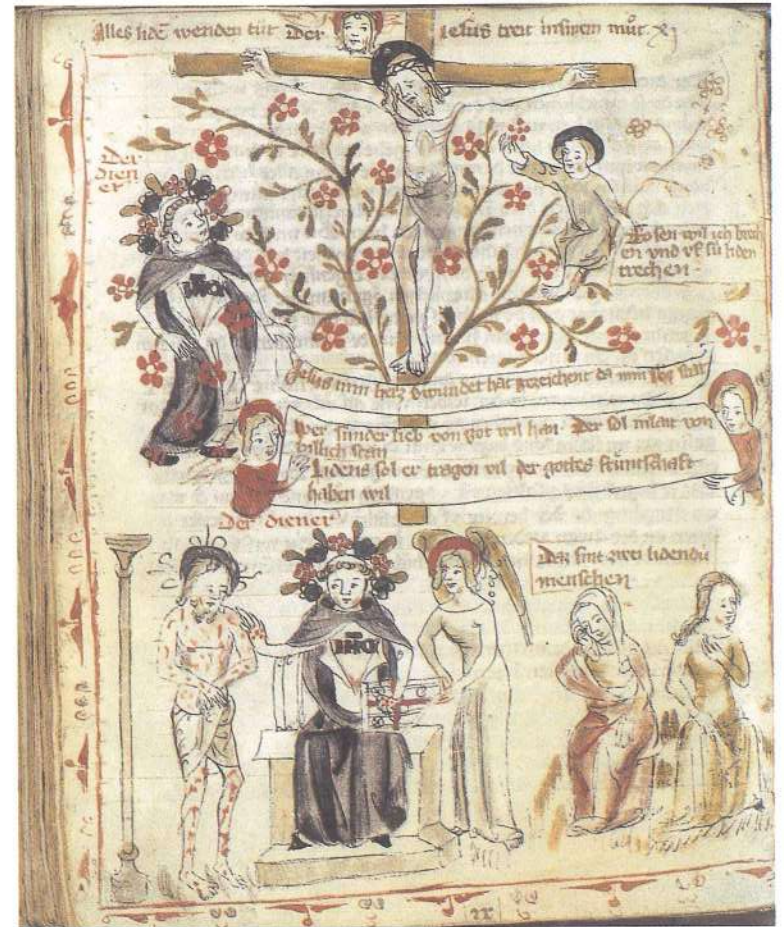 Alles lidē wenden tůt Der Jesus treit in sinem můt
Der
dien
er
Rosen wil ich brech
en vnd vf sů liden
trechen
Jesus min herz verwundet hat gezeichent da min
Wer sunder lieb von got wil han Der sol von
billich stan
Lidens sol er tragen vil der gottes frúntschaft
haben wil
Der diener
Daz sint zwei lidendů
menschen